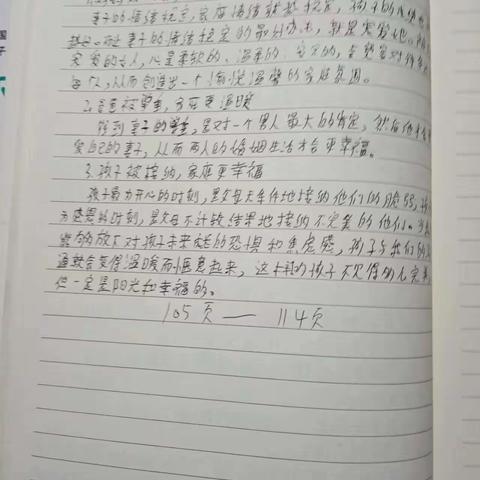 妻子的情绪稳定,家庭情绪就越稳定,孩子的
越
安的女人,心是柔软的、温柔的、安定的,
每个人,从而创造出一个愉悦温馨的家庭氛围。
2.爸爸被尊重,家庭更温暖
得到妻子的尊重,是对一个男人最大的肯定,然后他才会
爱自己的妻子,从而两人的婚姻生活才会更幸福。
3.孩子被接纳,家庭更幸福
孩子最为开心的时刻,是父母无条件地接纳他们的脆弱,
为感恩的时刻,是父母不计较结果地接纳不完美的他们。
能够放下对孩子未来的恐惧和焦虑感,孩子与我们的
通就会变得温暖而惬意起来,这样的孩子不见得的完美
但一定是阳光和幸福的。
105页 — 114页
国
子